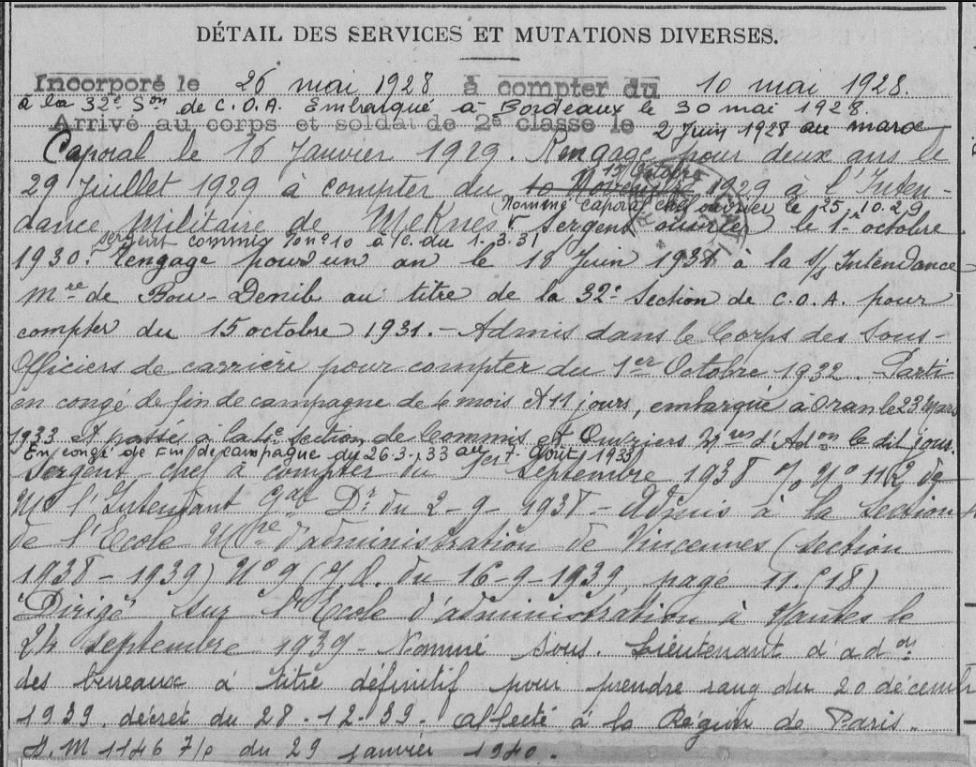 DÉTAIL DES SERVICES ET MUTATIONS DIVERSES.
Incorporé le 26 mai 1928 à compter du 10 mai 1928.
à la 32e Son de C.O.A. Embarqué à Bordeaux le 30 mai 1928.
Arrivé au corps et soldat de 2e classe le 2 Juin 1928 au maroc
Caporal le 16 Janvier 1929. Rengagé pour deux ans le
15 Octobre
29 Juillet 1929 à compter du 10 Novembre 1929 à l'Inten-
Nommé caporal chef ouvrier le 25.10.29
dance Militaire de Meknès. Sergent (ouvrier) le 1er octobre
Sergent commis à c. du 1.3.31
1930. Rengagé pour un an le 18 Juin 1931 à la s/s Intendance
Mre de Bou-Denib au titre de la 32e Section de C.O.A. pour
compter du 15 octobre 1931. - Admis dans le Corps des Sous-
Officiers de carrière pour compter du 1er Octobre 1932. Parti
en congé de fin de campagne de 4 mois et 11 jours, embarqué à Oran le 23 Mars
1933 et passé à la section de Commis et Ouvriers Mres d'Adon le dit jour.
En congé de fin de campagne du 26.3.33 au Août 1933
Sergent-chef à compter du 1er Septembre 1938 No 11 de
Mr l'Intendant Gal Dr du 2-9-1938 - Admis à la section
de l'Ecole Mre d'administration de Vincennes (section
1938-1939) No 9 (J.O. du 16-9-1939, page 11.518)
Dirigé sur l'Ecole d'administration à Nantes le
24 septembre 1939 - Nommé Sous-Lieutenant d'adon
des bureaux à titre définitif pour prendre rang du 20 décemb
1939. décret du 28.12.39. affecté à la Région de Paris.
D.M 1146 7/0 du 29 janvier 1940.